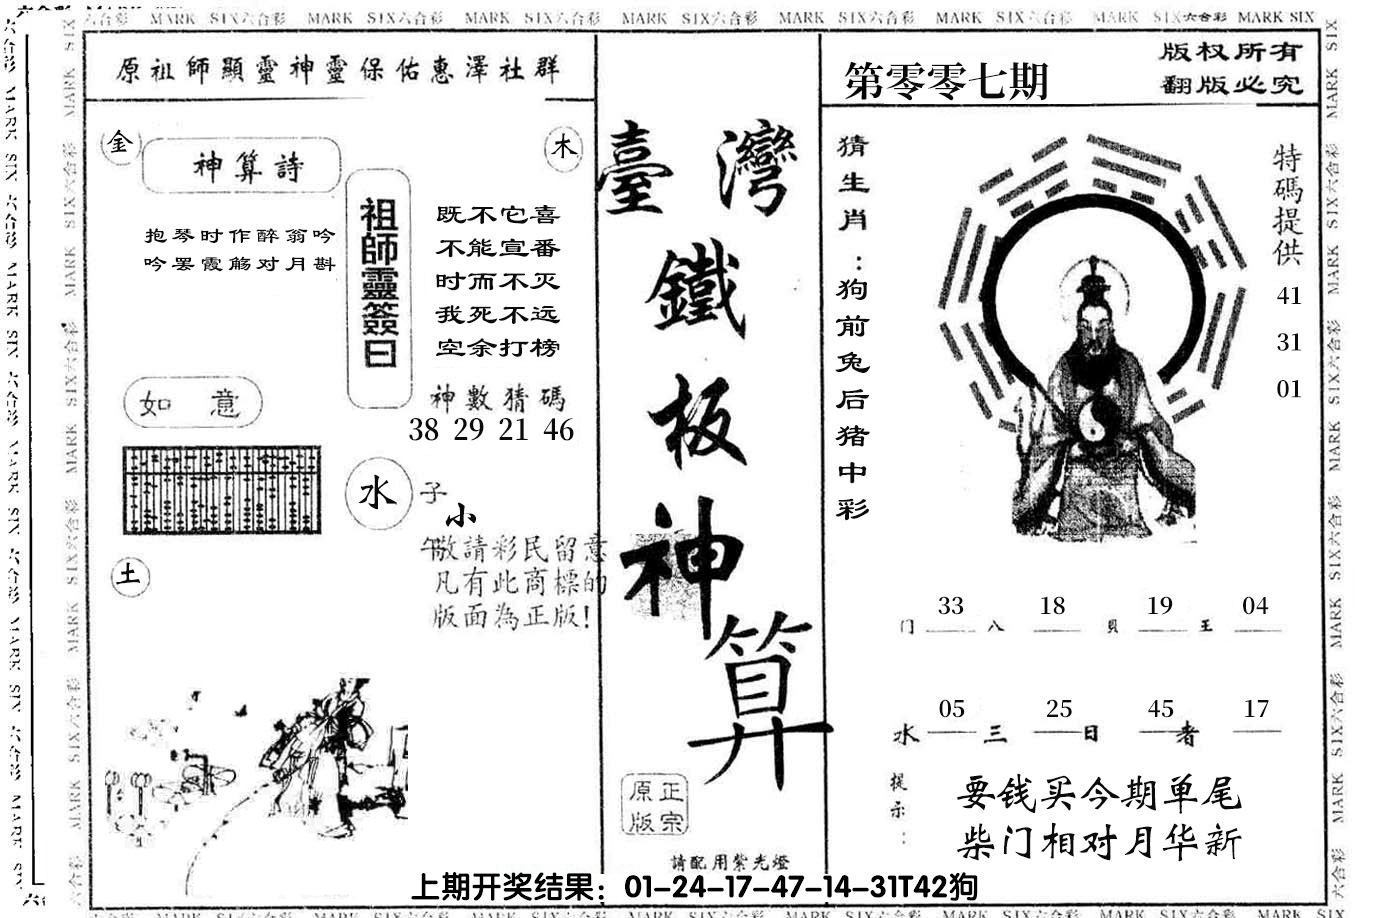 MARK SIX六合彩 MARK SIX六合彩 MARK SIX六合彩 MARK SIX六合彩 MARK SIX六合彩 MARK SIX六合彩 MARK SIX六合彩 MARK SIX
原祖師顯靈神靈保佑惠澤社群
金
神算詩
木
抱琴时作醉翁吟
吟罢霞觞对月斟
祖師靈簽曰
既不它喜
不能宣番
时而不灭
我死不远
空余打榜
神數猜碼
38 29 21 46
如 意
水
子
小
午
敬請彩民留意
凡有此商標的
版面為正版!
土
臺灣
鐵
板
神
算
正宗
原版
請配用紫光燈
第零零七期
版权所有
翻版必究
猜生肖:狗前兔后猪中彩
特碼提供
41
31
01
33 18 19 04
门 八 貝 王
05 25 45 17
水 三 日 者
提示:
要钱买今期单尾
柴门相对月华新
上期开奖结果：01-24-17-47-14-31T42狗